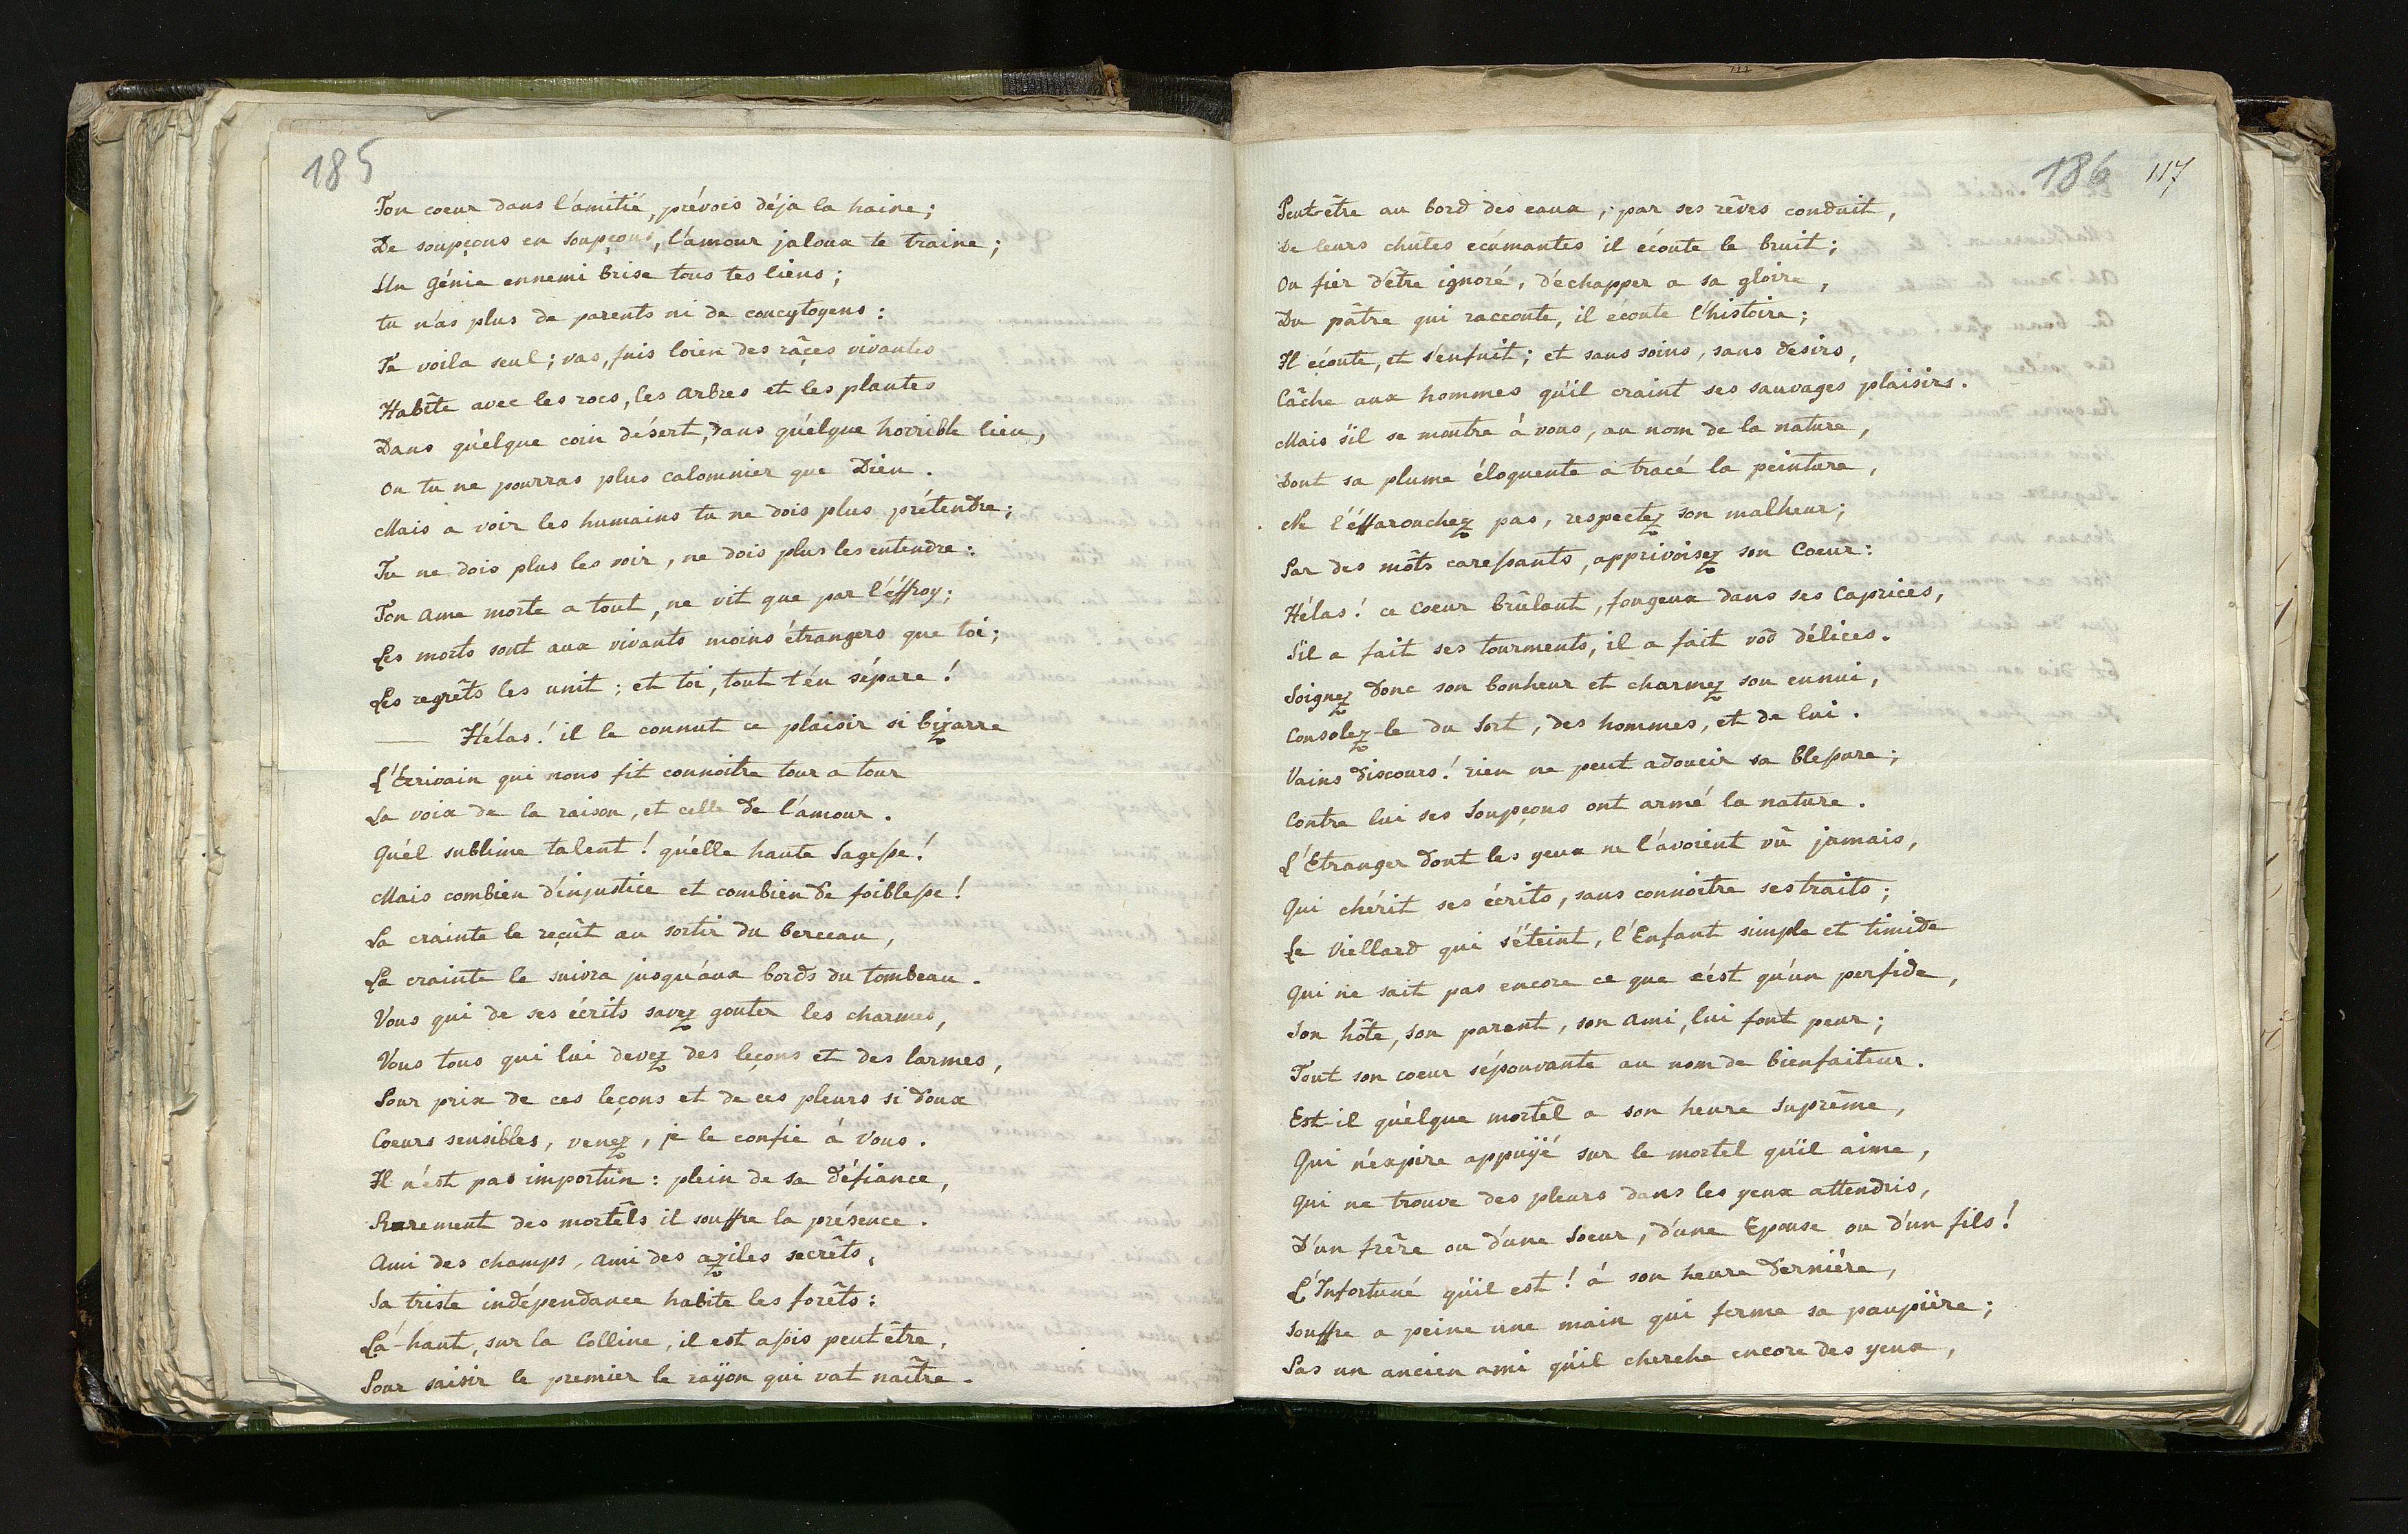 185
Ton coeur dans l'amitié, prévois déja la haine;
De soupçons en soupçons, l'amour jaloux te traine;
Un génie ennemi brise tous tes liens;
tu n'as plus de parents ni de concytoyens:
Te voila seul; vas, fuis loien des râçes vivantes
Habîte avec les rocs, les arbres et les plantes
Dans quélque coin désert, dans quélque horrible lieu,
ou tu ne pourras plus calomnier que Dieu.
Mais a voir les humains tu ne dois plus prétendre;
Tu ne dois plus les voir, ne dois plus les entendre:
Ton ame morte a tout, ne vit que par l'éffroy;
Les morts sont aux vivants moins étrangers que toi;
Les regrêts les unit; et toi, tout t'én sépare!
— Hélas! il le connut ce plaisir si bizarre
L'Ecrivain qui nous fit connoitre tour a tour
La voix de la raison, et celle de l'amour.
Quél sublime talent! quélle haute Sagesse!
Mais combien d'injustice et combien de foiblesse!
La crainte le reçût au sortir du berceau,
La crainte le suivra jusqu'aux bords du tombeau.
Vous qui de ses écrits savez gouter les charmes,
Vous tous qui lui devez des leçons et des larmes,
Pour prix de ces leçons et de ces pleurs si doux
Coeurs sensibles, venez, je le confie à vous.
Il n'ést pas importun: plein de sa défiance,
Rarement des mortêls il souffre la présence.
Ami des champs, ami des aziles secrêts,
Sa triste indépendance habite les forêts:
Là-haut, sur la Colline, il est assis peut être,
Pour saisir le premier le raÿon qui vat naître.
186 117
Peut-être au bord des eaux, par ses rêves conduit,
De leurs chûtes ecumantes il écoute le bruit;
Ou fier d'être ignoré, d'échapper a sa gloire,
Du pâtre qui racconte, il écoute l'histoire;
Il ecoute, et s'enfuit; et sans soins, sans desirs,
Câche aux hommes qu'il craint ses sauvages plaisirs.
Mais s'il se montre à vous, au nom de la nature,
Dont sa plume éloquente a tracé la peinture,
Ne l'éffarouchez pas, respectez son malheur;
Par des môts caressants, apprivoisez son Coeur:
Hélas! ce Coeur brûlant, fougeux dans ses Caprices,
S'il a fait ses tourments, il a fait vôs délices.
Soignez donc son bonheur et charmez son ennui,
Consolez-le du Sort, des hommes, et de lui.
Vains discours! rien ne peut adoucir sa blessure;
Contre lui ses Soupçons ont armé la nature.
L'Etranger dont les yeux ne l'avoient vû jamais,
Qui chérit ses écrits, sans connoitre ses traits;
Le Viellard qui s'éteint, l'Enfant simple et timide
Qui ne sait pas encore ce que c'ést qu'un perfide,
Son hôte, son parent, son ami, lui font peur;
Tout son coeur s'épouvante au nom de bienfaiteur.
Est-il quélque mortêl a son heure Suprême,
Qui n'éxpire appuÿé sur le mortel qu'il aime,
Qui ne trouve des pleurs dans les yeux attendris,
D'un frêre ou d'une Soeur, d'une Epouse ou d'un fils!
L'Infortuné qu'il est! à son heure dernière,
Souffre a peine une main qui ferme sa paupière;
Pas un ancien ami qu'il cherche encore des yeux,